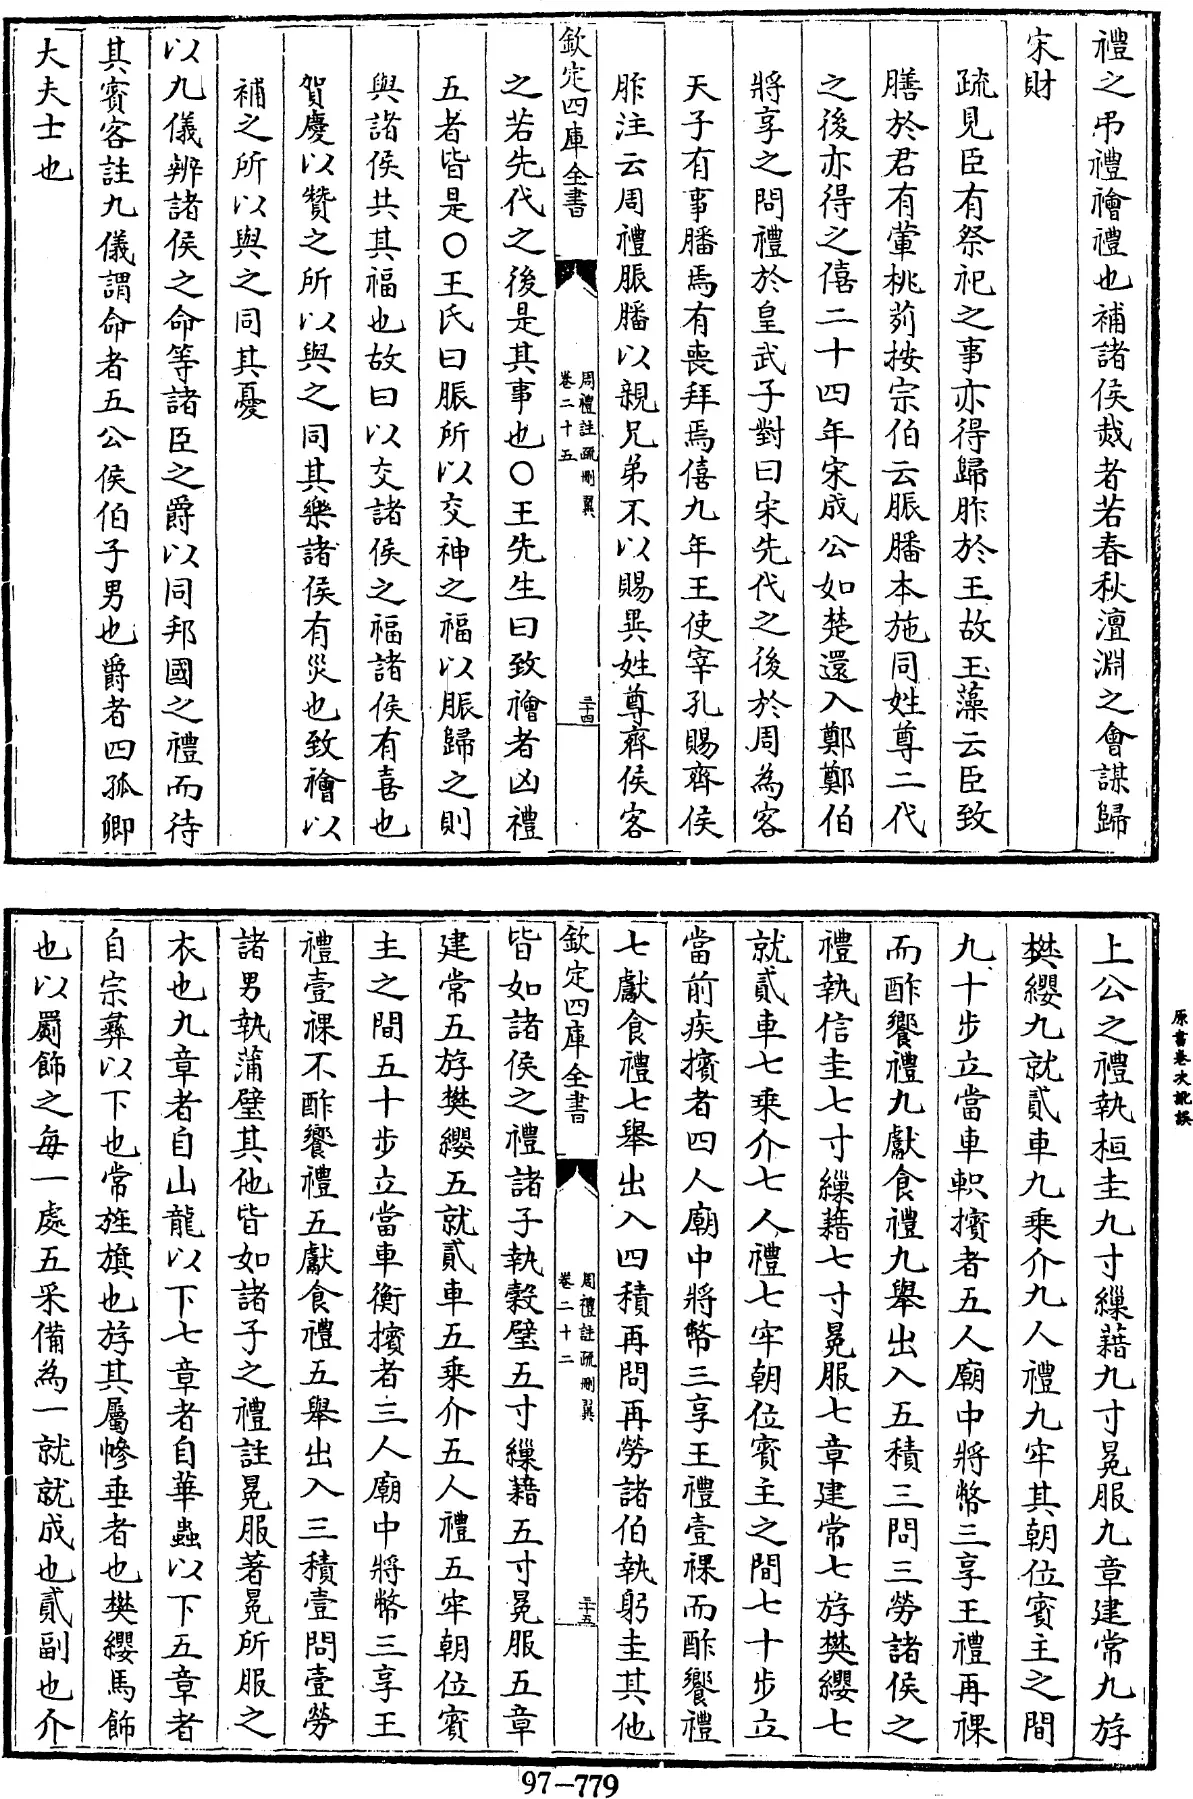 禮之弔禮禬禮也補諸侯烖者若春秋澶淵之會謀歸
宋財
疏見臣有祭祀之事亦得歸胙於王故玉藻云臣致
膳於君有葷桃茢按宗伯云脤膰本施同姓尊二代
之後亦得之僖二十四年宋成公如楚還入鄭鄭伯
將享之問禮於皇武子對曰宋先代之後於周為客
天子有事膰焉有喪拜焉僖九年王使宰孔賜齊侯
胙注云周禮脤膰以親兄弟不以賜異姓尊齊侯客
欽定四庫全書
周禮註疏刪翼
卷二十五
三十四
之若先代之後是其事也○王先生曰致禬者凶禮
五者皆是○王氏曰脤所以交神之福以脤歸之則
與諸侯共其福也故曰以交諸侯之福諸侯有喜也
賀慶以贊之所以與之同其樂諸侯有災也致禬以
補之所以與之同其憂
以九儀辨諸侯之命等諸臣之爵以同邦國之禮而待
其賓客註九儀謂命者五公侯伯子男也爵者四孤卿
大夫士也
上公之禮執桓圭九寸繅藉九寸冕服九章建常九斿
樊纓九就貳車九乘介九人禮九牢其朝位賓主之間
九十步立當車軹擯者五人廟中將幣三享王禮再祼
而酢饗禮九獻食禮九舉出入五積三問三勞諸侯之
禮執信圭七寸繅藉七寸冕服七章建常七斿樊纓七
就貳車七乘介七人禮七牢朝位賓主之間七十步立
當前疾擯者四人廟中將幣三享王禮壹祼而酢饗禮
七獻食禮七舉出入四積再問再勞諸伯執躬圭其他
欽定四庫全書
周禮註疏刪翼
卷二十二
三十五
皆如諸侯之禮諸子執穀璧五寸繅藉五寸冕服五章
建常五斿樊纓五就貳車五乘介五人禮五牢朝位賓
主之間五十步立當車衡擯者三人廟中將幣三享王
禮壹祼不酢饗禮五獻食禮五舉出入三積壹問壹勞
諸男執蒲璧其他皆如諸子之禮註冕服著冕所服之
衣也九章者自山龍以下七章者自華蟲以下五章者
自宗彝以下也常旌旗也斿其屬幓垂者也樊纓馬飾
也以罽飾之每一處五采備為一就就成也貳副也介
原書卷次訛誤
97-779